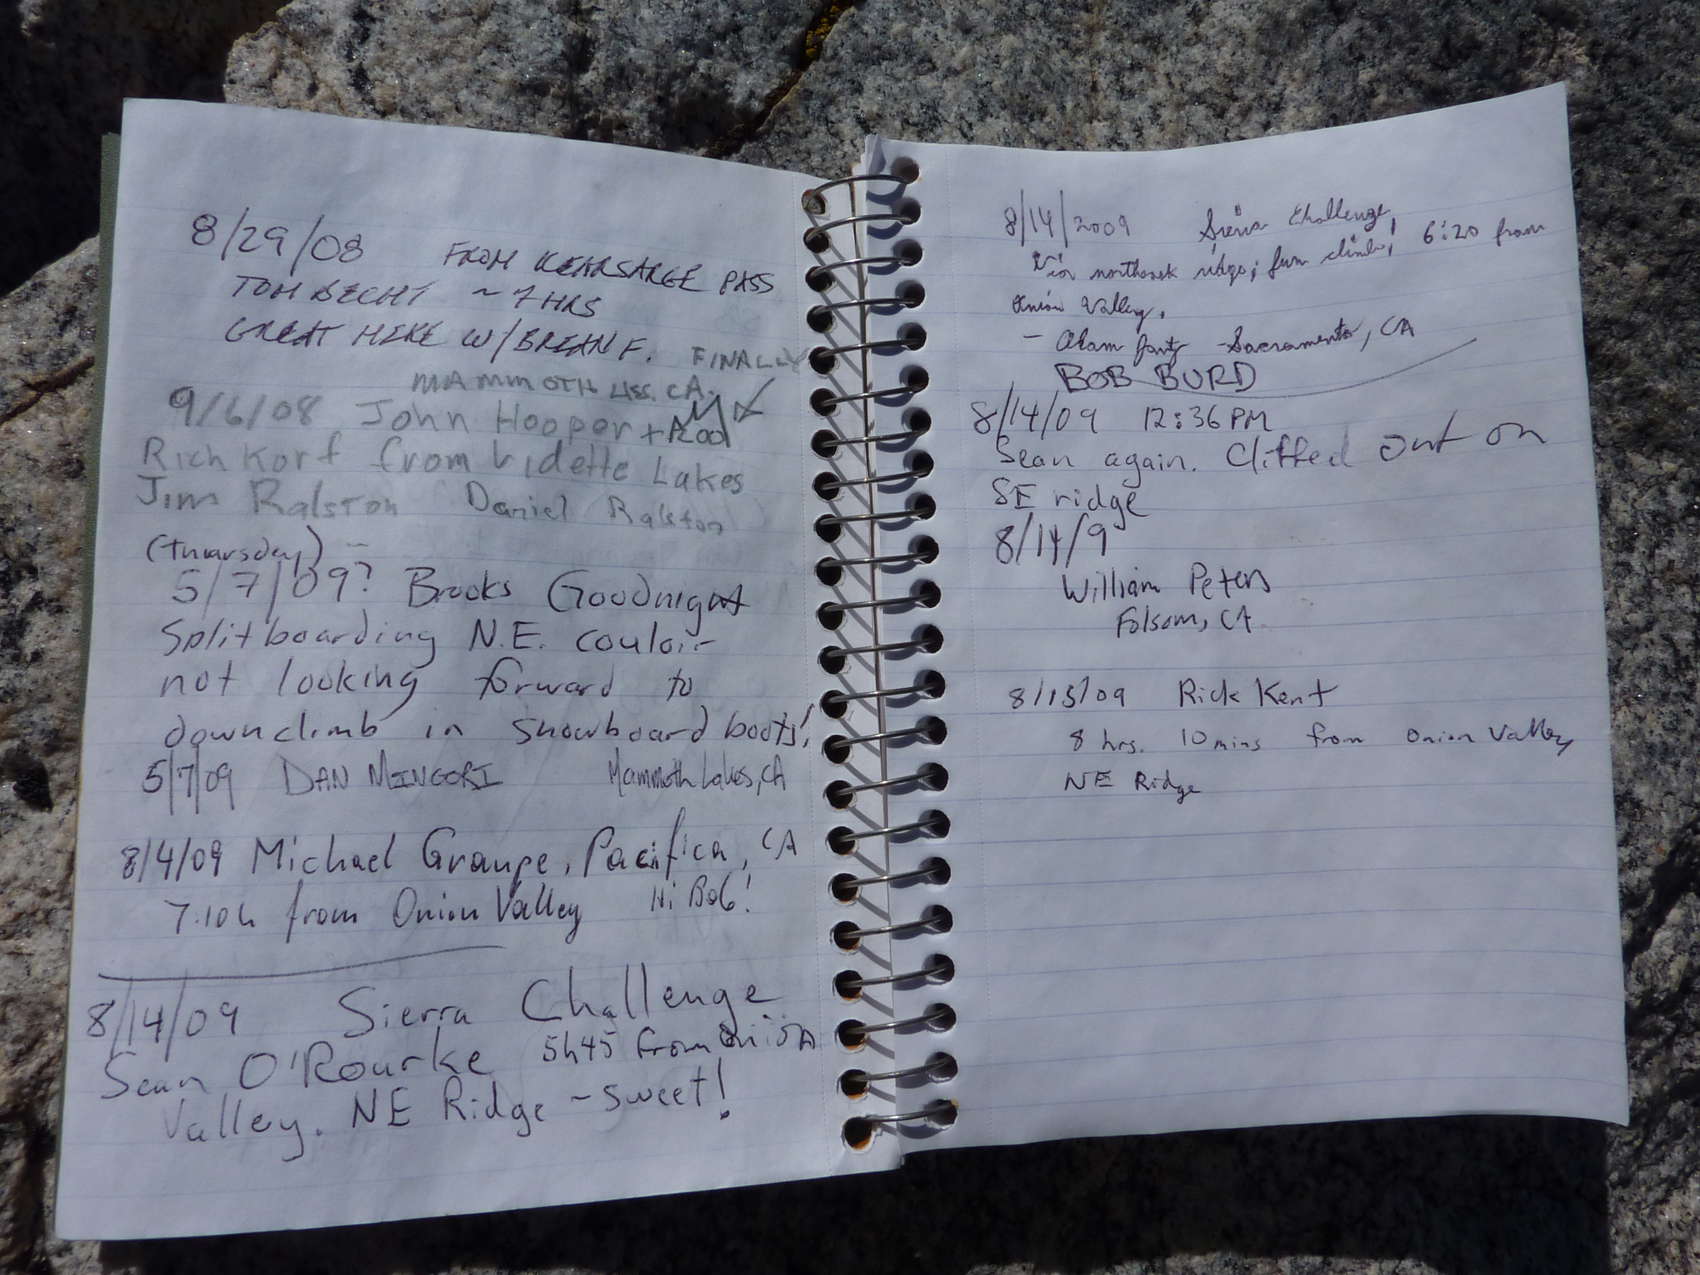 8/29/08 FROM KEARSARGE PASS
TOM BECHT ~ 7 HRS
GREAT HIKE W/BRIAN F. FINALLY
MAMMOTH LKS. CA.
9/6/08 John Hooper +
Rich Korf from Vidette Lakes
Jim Ralston Daniel Ralston
(thuarsday)
5/7/09? Brooks Goodnight
Splitboarding N.E. couloir
not looking forward to
downclimb in snowboard boots!
5/7/09 DAN MINGORI Mammoth Lakes, CA
8/4/09 Michael Graupe, Pacifica, CA
7:10h from Onion Valley Hi Bob!
8/14/09 Sierra Challenge
Sean O'Rourke 5h45 from Onion
Valley. NE Ridge ~ sweet!
8/14/2009 Sierra Challenge,
Via northeast ridge; fun climb! 6:20 from
Onion Valley.
- Adam - Sacramento, CA
BOB BURD
8/14/09 12:36 PM
Sean again. Cliffed out on
SE ridge
8/14/9
William Peters
Folsom, CA
8/15/09 Rick Kent
8 hrs. 10 mins from Onion Valley
NE Ridge